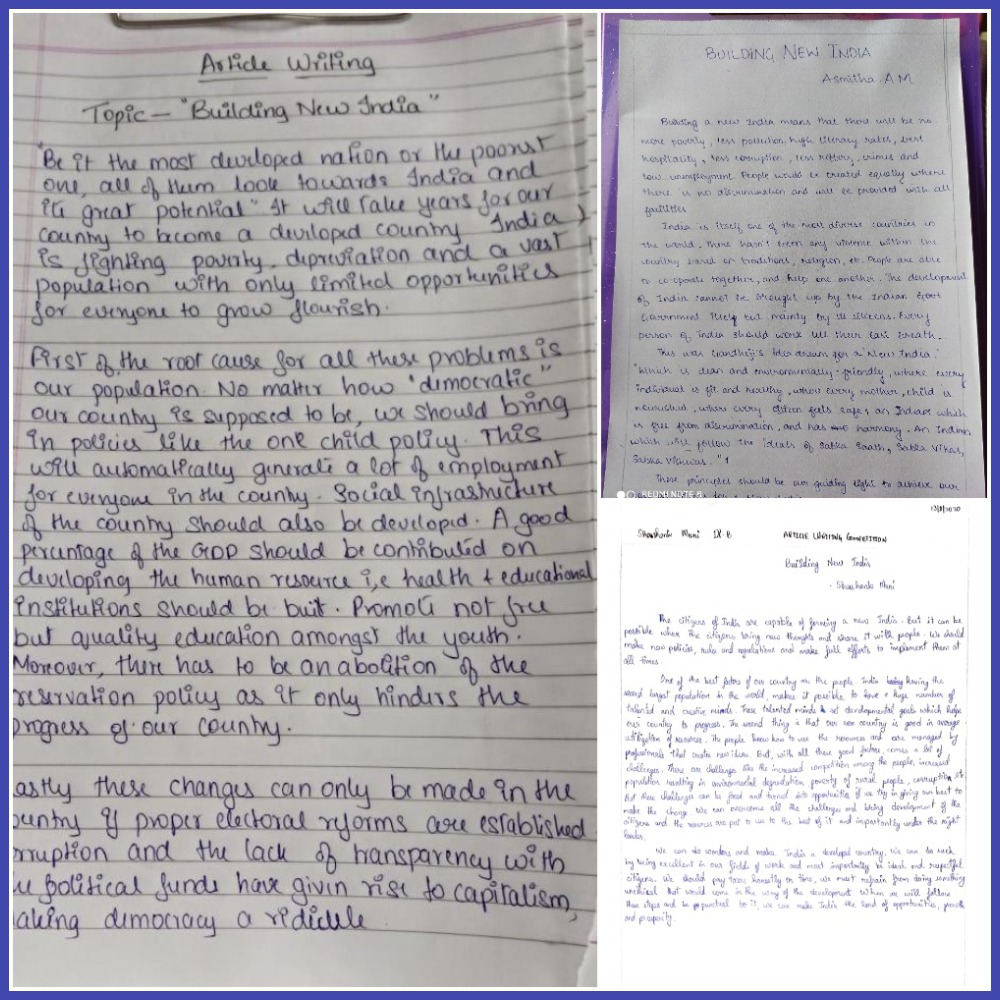 Article Writing
Topic - "Building New India"
"Be it the most developed nation or the poorest
one, all of them look towards India and
its great potential" It will take years for our
country to become a developed country India
is fighting poverty, depreviation and a vast
population with only limited opportunities
for everyone to grow flourish.
First of the root cause for all these problems is
our population. No matter how "democratic"
our country is supposed to be, we should bring
in policies like the one child policy. This
will automatically generate a lot of employment
for everyone in the country. Social infrastructure
of the country should also be developed. A good
percentage of the GDP should be contributed on
developing the human resource i,e health + educational
institutions should be built. Promote not free
but quality education amongst the youth.
Moreover, there has to be an abolition of the
reservation policy as it only hinders the
progress of our country.
astly these changes can only be made in the
ountry if proper electoral reforms are established
rruption and the lack of transparency with
political funds have given rise to capitalism,
aking democracy a ridicule.
BUILDING NEW INDIA
Asmitha. A M
Building a new India means that there will be no
more poverty, less pollution, high literacy rates, best
hospitality, less corruption, less robbery, crimes and
low unemployment. People would be treated equally where
there is no discrimination and will be provided with all
facilities
India is itself one of the most diverse countries in
the world. There hasn't been any violence within the
country based on traditions, religion, etc. People are able
to co-operate together, and help one another. The development
of India cannot be brought up by the Indian Govt
Government itself but mainly by its citizens. Every
person of India should work till their last breath.
This was Gandhiji's idea dream for a 'New India.'
"Which is clean and environmentally-friendly, where every
individual is fit and healthy, where every mother, child is
nourished, where every citizen feels safe, an India which
is free from discrimination, and has harmony. An India
which will follow the ideals of Sabka Saath, Sabka Vikas,
Sabka Vishwas." 1
These principles should be our guiding light to achieve our
REDMI NOTE 8
13/8/2020
Shashank Mani IX-B ARTICLE WRITING COMPETITION
Building New India
- Shashank Mani
The citizens of India are capable of forming a new India. But it can be
possible when the citizens bring new thoughts and share it with people. We should
make new policies, rules and regulations and make full efforts to implement them at
all times.
One of the best factors of our country are the people. India having the
second largest population in the world, makes it possible to have a huge number of
talented and creative minds. These talented minds set developmental goals which helps
our country to progress. The second thing is that our country is good in average
utilization of resources. The people know how to use the resources and are managed by
professionals that create new ideas. But, with all these good factors, comes a lot of
challenges. There are challenges like the increased competition among the people, increased
population resulting in environmental degradation, poverty of rural people, corruption etc.
But these challenges can be faced and turned into opportunities if we try in giving our best to
make the change. We can overcome all the challenges and bring development of the
citizens and the resources are put to use to the best of it and importantly under the right
leader.
We can do wonders and make India a developed country. We can do such
by being excellent in our fields of work and most importantly be ideal and respectful
citizens. We should pay taxes honestly on time, we must refrain from doing something
unethical that would come in the way of the development. When we will follow
these steps and be punctual to it, we can make India the land of opportunities, growth
and prosperity.